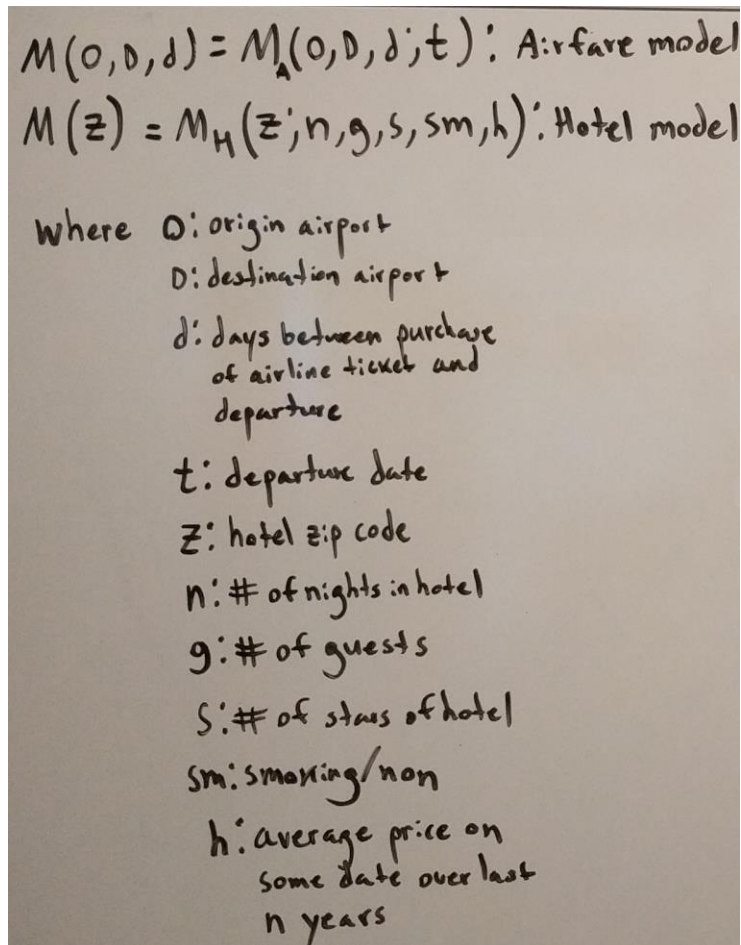 M(O,D,d) = M_A(O,D,d;t): Airfare model
M(z) = M_H(z;n,g,s,sm,h): Hotel model
where O: origin airport
D: destination airport
d: days between purchase
of airline ticket and
departure
t: departure date
z: hotel zip code
n: # of nights in hotel
g: # of guests
S: # of stars of hotel
sm: smoking/non
h: average price on
some date over last
n years